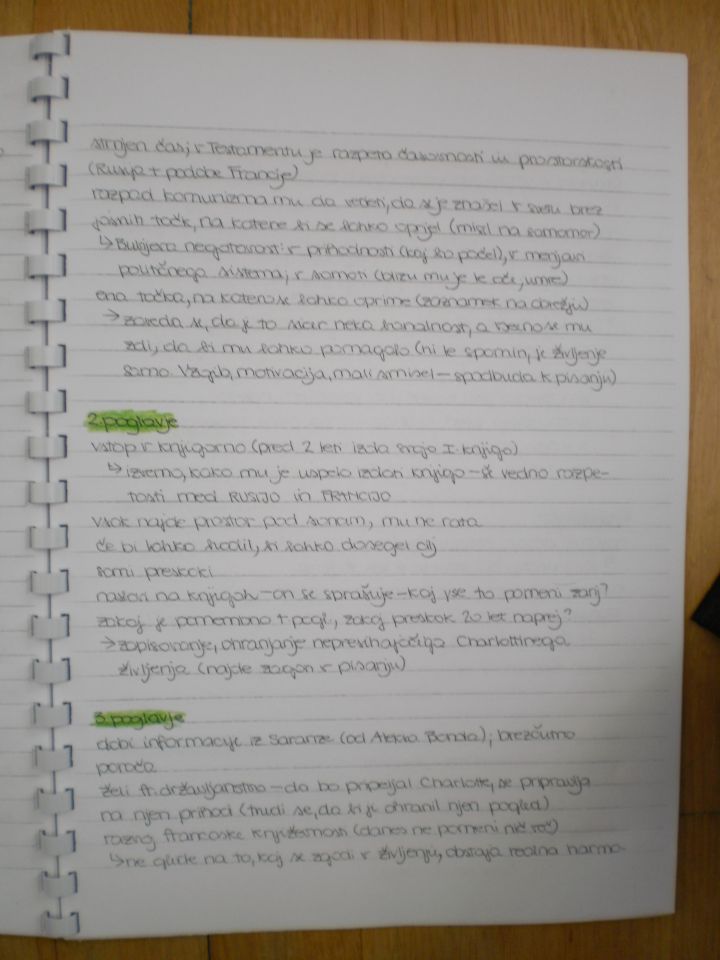 strnjen čas; v Testamentu je razpeta časovnosti in prostorskosti
(Rusija + podobe Francije)
razpad komunizma mu da vedeti, da se je znašel v svetu brez
jasnih točk, na katere bi se lahko oprijel (misel na samomor)
↳ Bivljera negotovost: v prihodnosti (kaj bo počel), v menjavi
političnega sistema, v samoti (blizu mu je le oče, umre)
ena točka, na katero se lahko oprime (zaznamek na obrežju)
→ zaveda se, da je to sicer neka banalnost, a vseeno se mu
zdi, da bi mu lahko pomagalo (ni le spomin, je življenje
samo. Vzgib, motivacija, mali smisel – spodbuda k pisanju)
2. poglavje
vstop v knjigarno (pred 2 leti izda svojo 1. knjigo)
↳ izvemo, kako mu je uspelo izdati knjigo – še vedno razpe-
tosti med RUSIJO in FRANCIJO
vsak najde prostor pod soncem, mu ne rata
če bi lahko hodil, bi lahko dosegel cilj
sami preskoki
naslovi na knjigah – on se sprašuje – kaj vse to pomeni zanj?
zakaj je pomembno + pogl., zakaj preskok 20 let naprej?
→ zapisovanje, ohranjanje neprevihajočega Charlottinega
življenja (najde zagon v pisanju)
3. poglavje
dobi informacije iz Saranze (od Alekseja Bonda); brezčutno
poroča
želi fr. državljanstvo – da bo pripeljal Charlotte, se pripravlja
na njen prihod (trudi se, da bi ji ohranil njen pogled)
razvoj francoske književnosti (danes ne pomeni nič več)
↳ ne glede na to, kaj se zgodi v življenju, obstaja realna harmo-